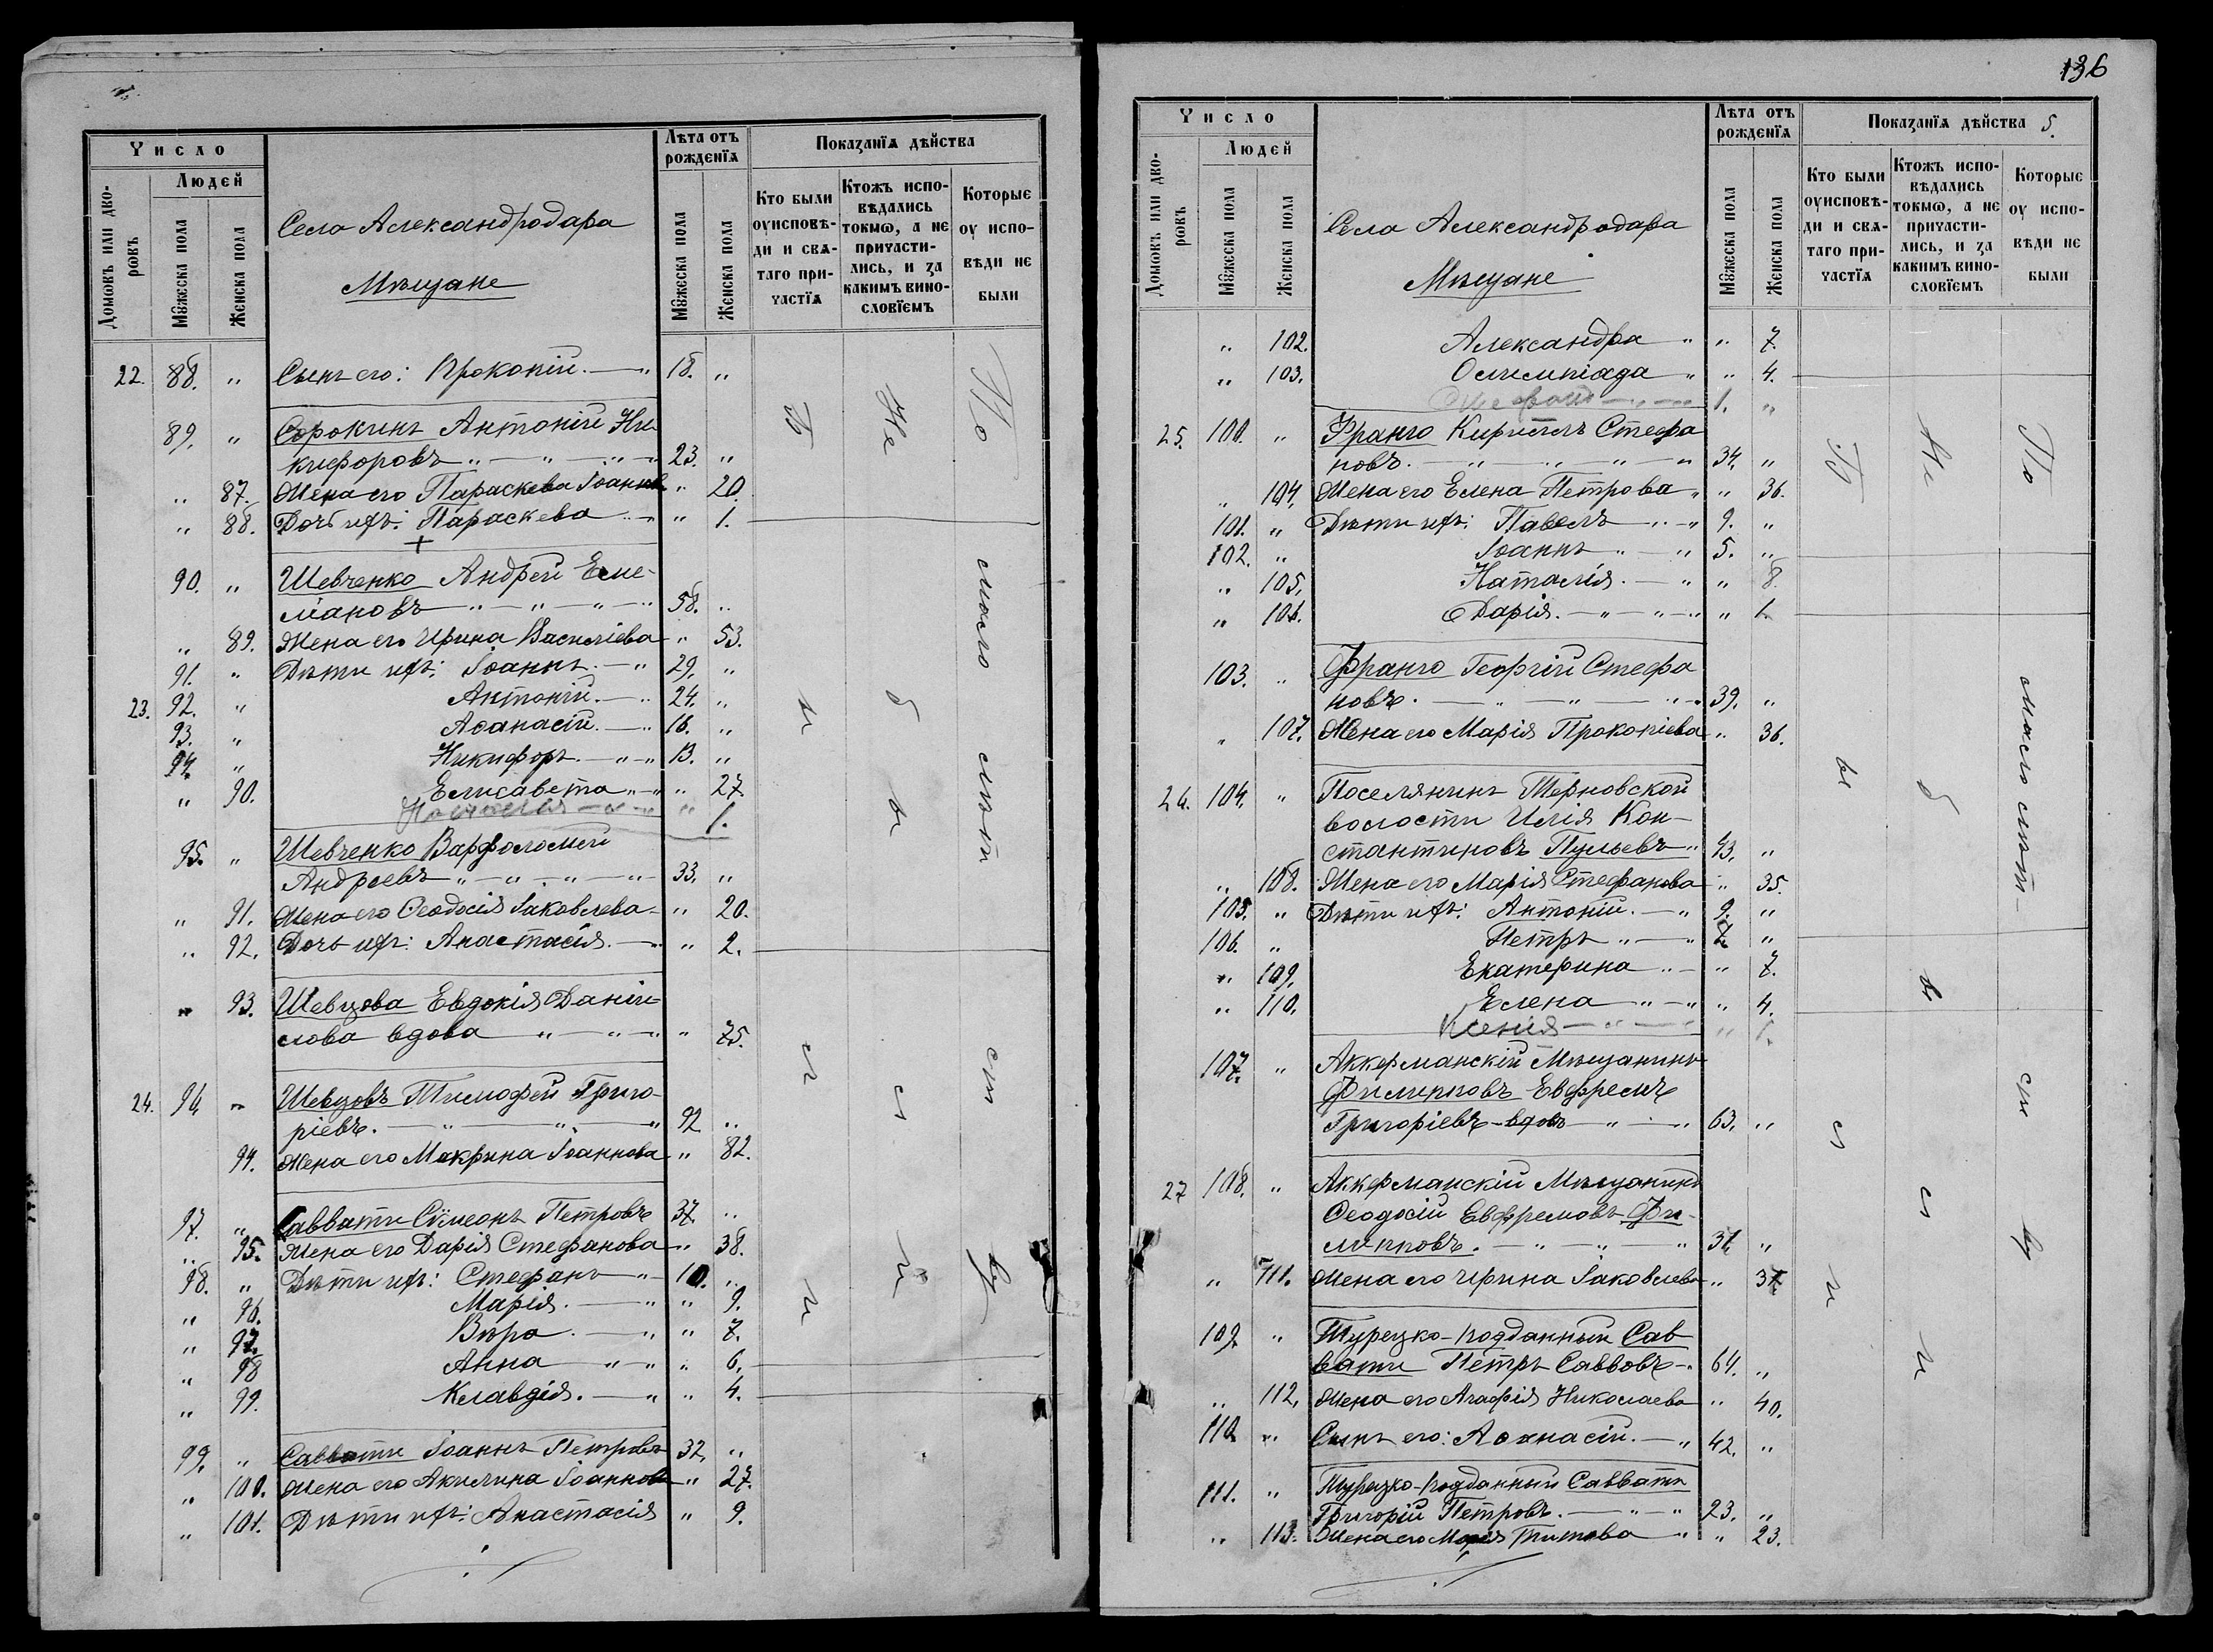 Число
Людей
Домовъ или дворѡвъ
Мꙋжеска пола
Женска пола
Села Александродара
Мѣщане
Лѣта отъ рожденїѧ
Мꙋжеска пола
Женска пола
Показанїѧ дѣйства
Кто были оу исповѣди и свѧтаго причастїѧ
Ктожъ исповѣдались токмѡ, а не причастились, и за какимъ винословїемъ
Которые оу исповѣди не были
22. 88. " Сынъ его: Прокопій. — " 18. "
89. " Сорокинъ Антоній Ни
кифоровъ " — " — " — " 23. "
" 87. Жена его Параскева Іоаннов. " 20.
" 88. Дочь ихъ: Параскева " — " " 1.
+
90. " Шевченко Андрей Еме-
ліановъ — " — " — " — " 58. "
" 89. Жена его Ирина Василіева " 53.
91. " Дѣти ихъ: Іоаннъ. — " 29. "
23. 92. " Антоній. — " 24. "
93. " Аѳанасій. — " 16. "
94. " Никифоръ. — " — " 13. "
" 90. Елисавета " — " " 27.
Наталія — " — " " 1.
95. " Шевченко Варфоломей
Андреевъ " — " — " — " 33. "
" 91. Жена его Ѳеодосія Іаковлева — " 20.
" 92. Дочь ихъ: Анастасія. — " " 2.
" 93. Шевцова Евдокія Даніи-
лова вдова " — " — " " 75.
24. 96. " Шевцовъ Тимофей Григо-
ріевъ. — " — " — " 92 "
94. Жена его Макрина Іоаннова " 82.
97. " Саввати Сѵмеонъ Петровъ 37. "
" 95. Жена его Дарія Стефанова " 38.
98. " Дѣти ихъ: Стефанъ " — 10. "
" 96. Марія. — " " 9.
" 97. Вѣра. — " " 7.
" 98 Анна " — " " 6.
" 99. Клавдія. — " " 4.
99. " Саввати Іоаннъ Петровъ 32. "
" 100. Жена его Акилина Іоаннова " 27.
" 101. Дѣти ихъ: Анастасія " 9.
Б ы л и
Не б ы л и
По малолѣтству
136
Число
Людей
Домовъ или дворѡвъ
Мꙋжеска пола
Женска пола
Села Александродара
Мѣщане
Лѣта отъ рожденїѧ
Мꙋжеска пола
Женска пола
Показанїѧ дѣйства 5.
Кто были оу исповѣди и свѧтаго причастїѧ
Ктожъ исповѣдались токмѡ, а не причастились, и за какимъ винословїемъ
Которые оу исповѣди не были
" 102. Александра " " 7.
" 103. Олимпіада " " 4.
Стефанъ — " — " 1. "
25. 100. " Франго Кириллъ Стефа
новъ. — " — " — " — " 34. "
" 104. Жена его Елена Петрова " " 36.
101. " Дѣти ихъ: Павелъ " — " 9. "
102. " Іоаннъ " — " 5. "
" 105. Наталія. — " " 8.
" 106. Дарія. — " — " — " " 1.
103. " Франго Георгій Стефа
новъ. — " — " — " — " 39. "
" 107. Жена его Марія Прокопіева " 36.
26. 104. " Поселянинъ Терновской
волости Илія Кон-
стантиновъ Пульевъ " 43. "
" 108. Жена его Марія Стефанова " 35.
105. " Дѣти ихъ: Антоній. — " 9. "
106. " Петръ " — " 7. "
" 109. Екатерина " — " 7.
" 110. Елена " — " " 4.
Ксенія — " — " " 1.
107. " Аккерманскій Мѣщанинъ
Филипповъ Евфремъ
Григоріевъ — вдовъ — " — " 63. "
27 108. " Аккерманскій Мѣщанинъ
Ѳеодосій Евфремовъ Фи-
липповъ. — " — " — " 31. "
" 111. Жена его Ирина Іаковлева " 31.
109. " Турецко-подданный Сав
вати Петръ Саввовъ — " 64. "
" 112. Жена его Агафія Николаева " 40.
110. " Сынъ его: Аѳанасій. — " 42. "
111. " Турецко-подданный Саввати
Григорій Петровъ. — " — " 23. "
" 113. Жена его Марія Титова " " 23.
Б ы л и
Не б ы л и
По малолѣтству